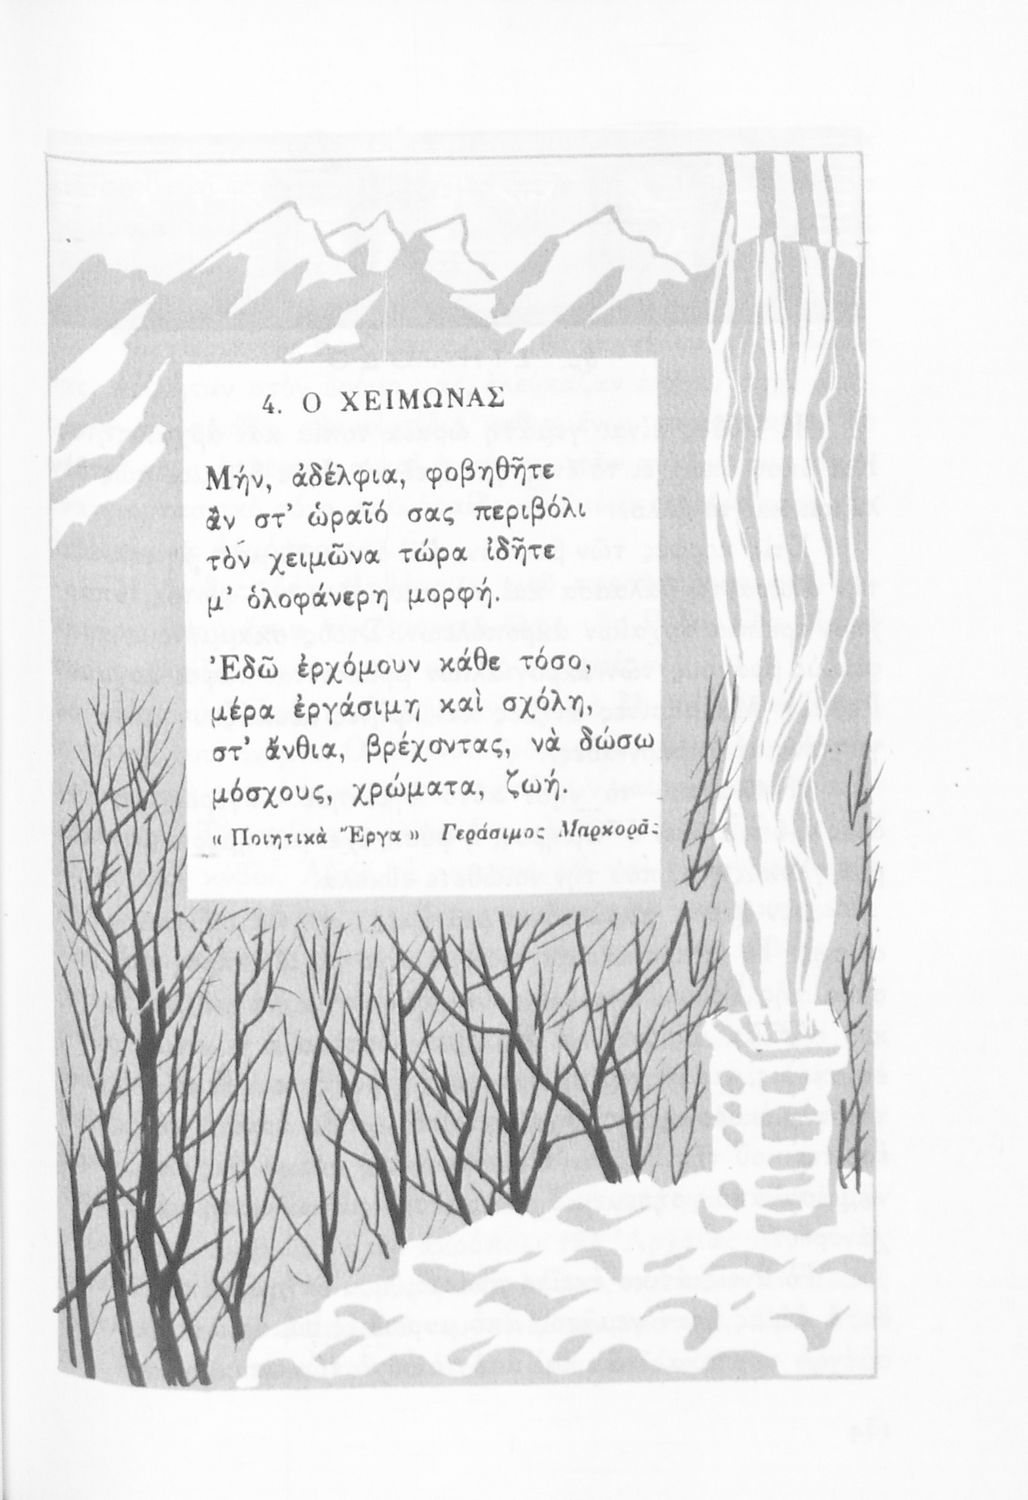 4. Ο ΧΕΙΜΩΝΑΣ
Μήν, ἀδέλφια, φοβηθῆτε
ἂν στ' ὡραῖό σας περιβόλι
τὸν χειμῶνα τώρα ἰδῆτε
μ' ὁλοφάνερη μορφή.
Ἐδῶ ἐρχόμουν κάθε τόσο,
μέρα ἐργάσιμη καὶ σχόλη,
στ' ἄνθια, βρέχοντας, νὰ δώσω
μόσχους, χρώματα, ζωή.
« Ποιητικὰ Ἔργα » Γεράσιμος Μαρκορᾶς